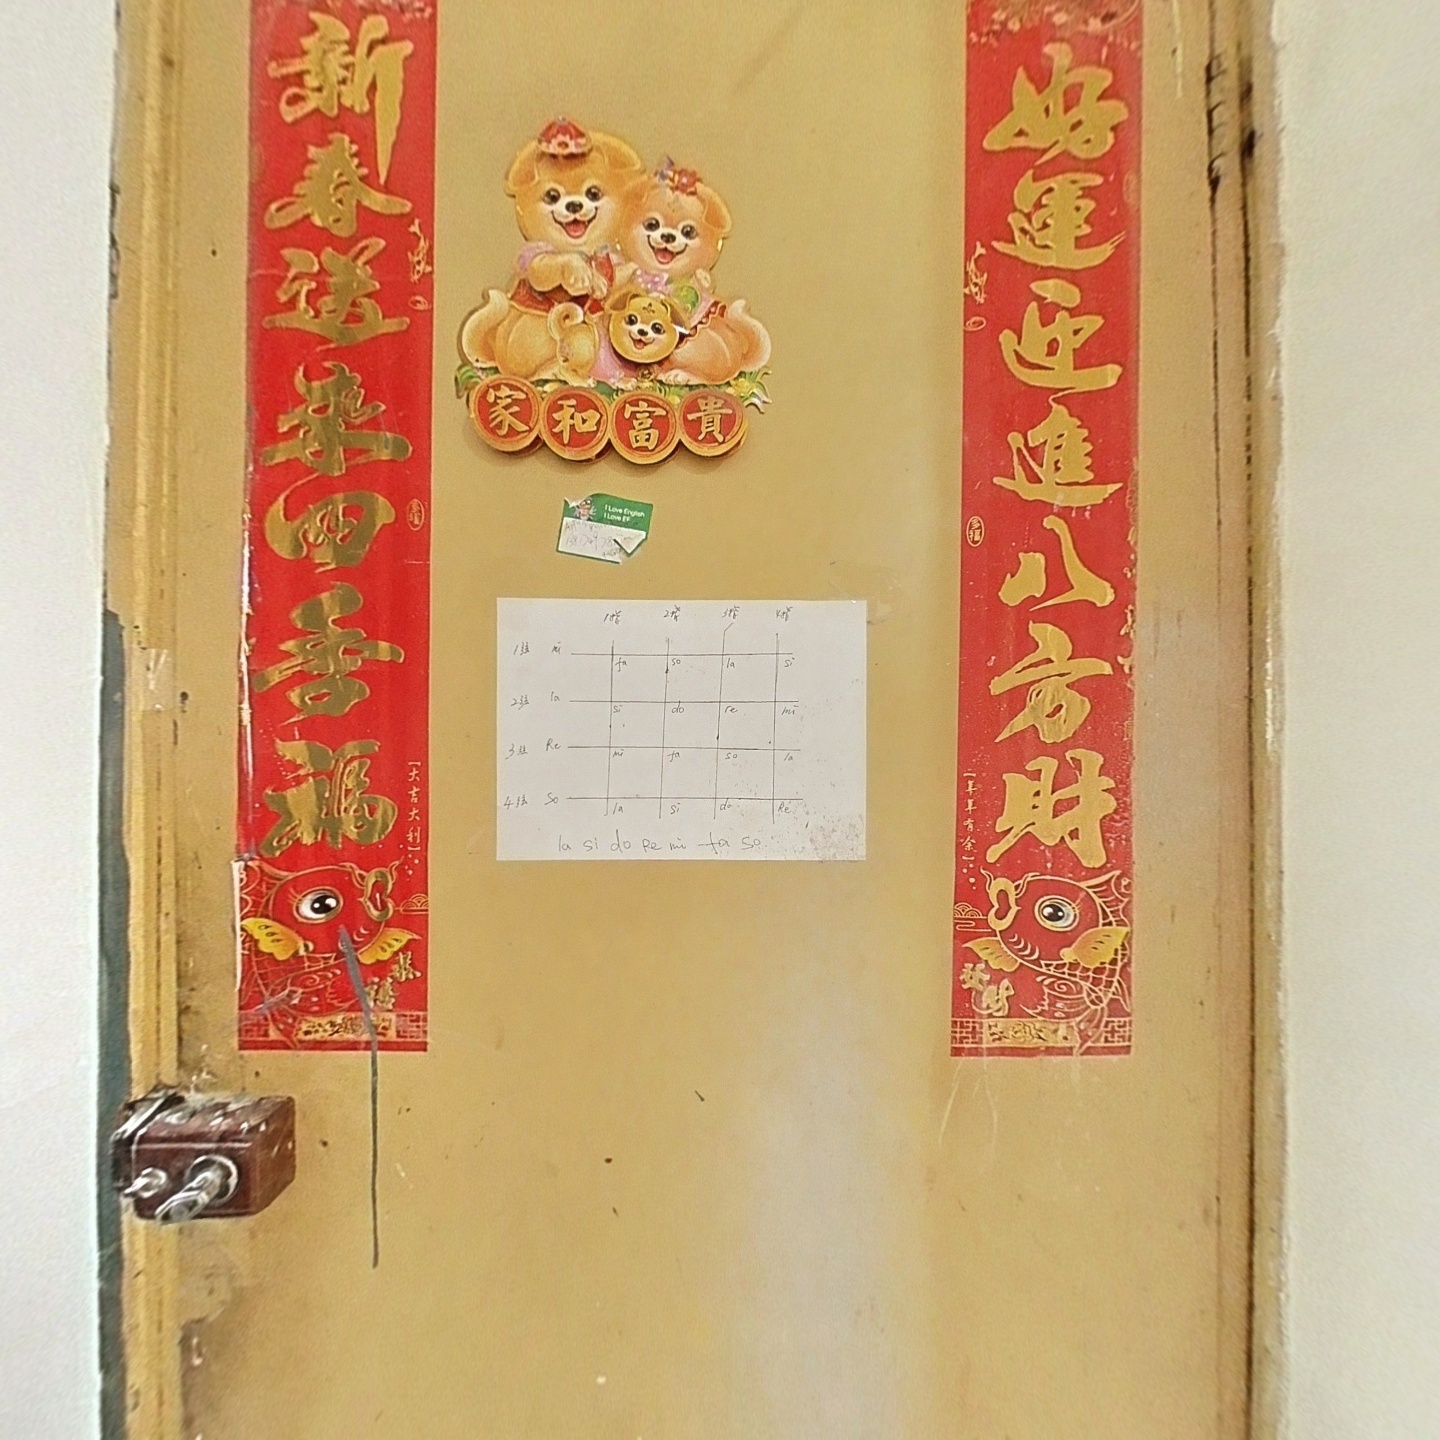 好運迎進八方財
新春送来四季福
【年年有余】
【大吉大利】
家和富貴
I Love English
I Love EF
1指 2指 3指 4指
1弦 mi fa so la si
2弦 la si do re mi
3弦 Re mi fa so la
4弦 So la si do Re
la si do Re mi fa so